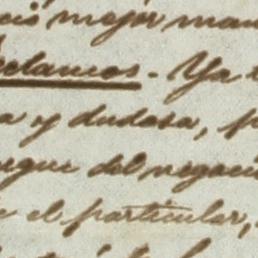 mejor man
clamos. Ya
a y dudosa, p
rgue del negoci
e el particular,